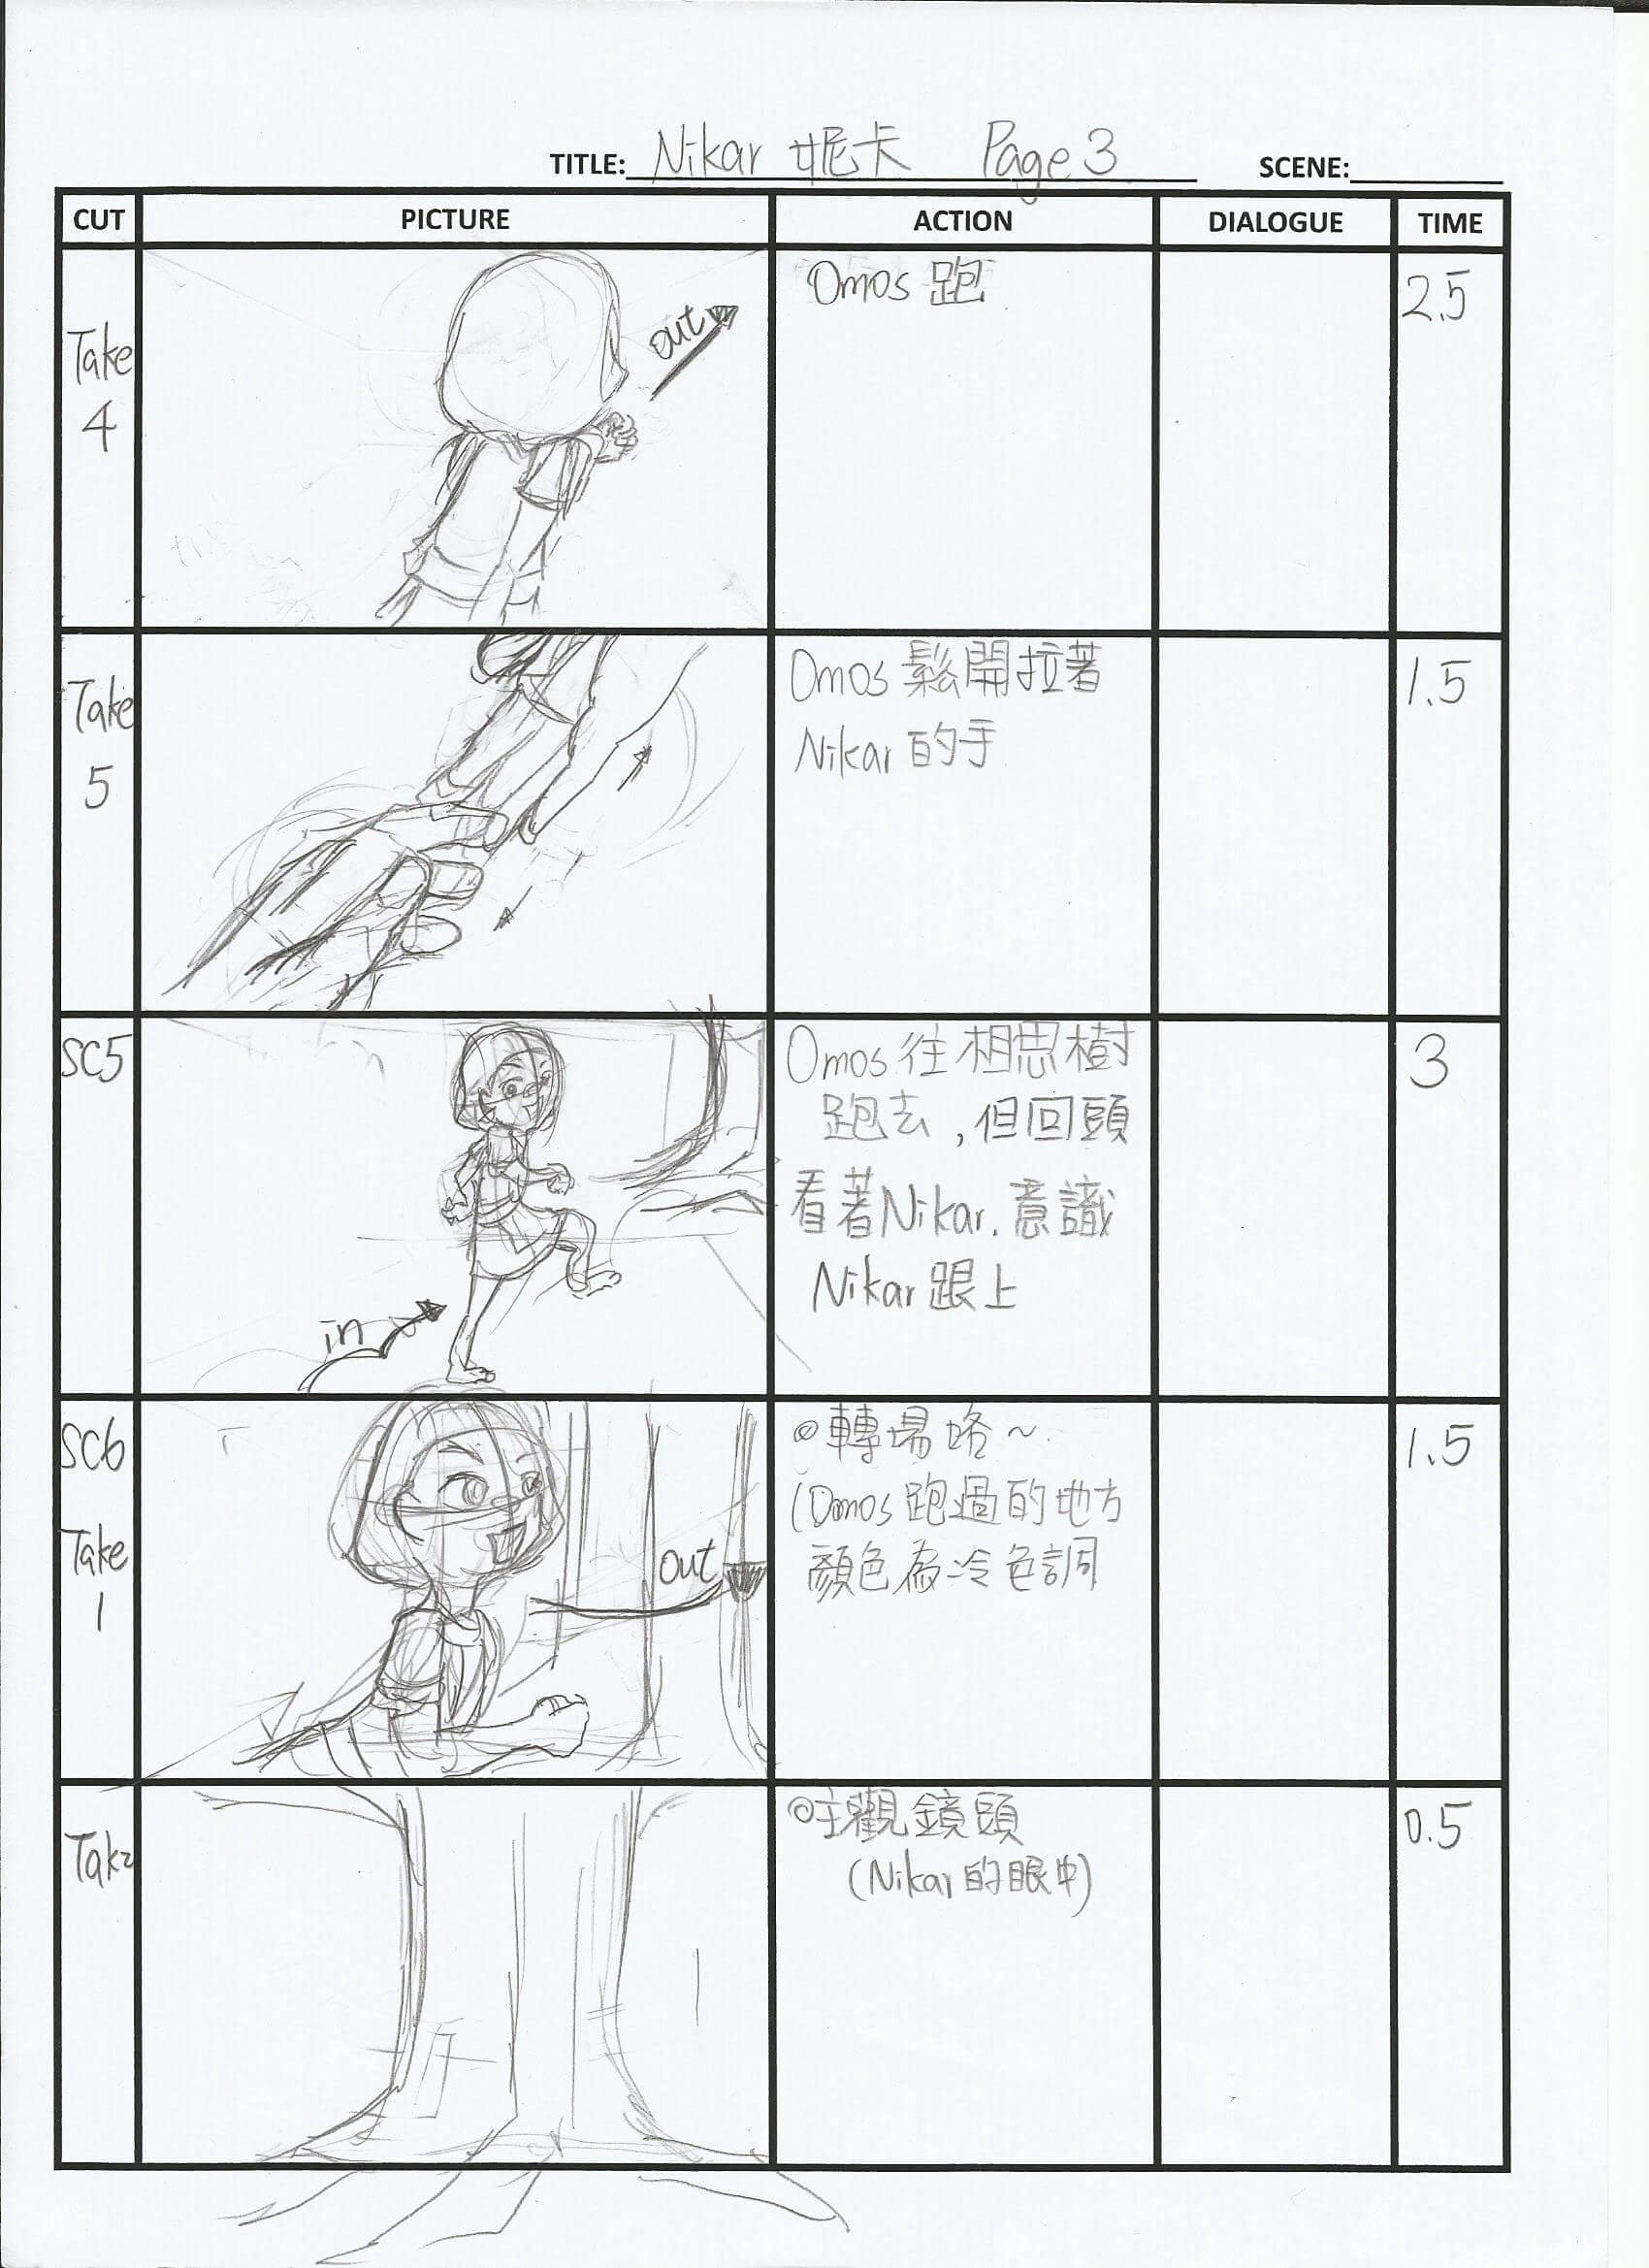 TITLE: Nikar 妮卡 Page 3 SCENE:
CUT PICTURE ACTION DIALOGUE TIME
Take
4
out
Omos 跑
2.5
Take
5
Omos 鬆開拉著
Nikar 的手
1.5
SC5
in
Omos 往相思樹
跑去,但回頭
看著Nikar.意識
Nikar 跟上
3
SC6
Take
1
out
◎轉場咯~
(Omos 跑過的地方
顏色為冷色調
1.5
Take
◎主觀鏡頭
(Nikar 的眼中)
0.5